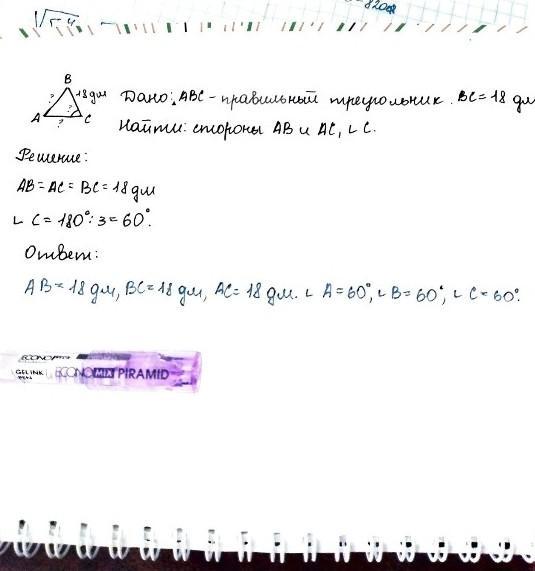 820
B
18 дм
A ? C
Дано: ABC - правильный треугольник. BC = 18 дм
Найти: стороны AB и AC, ∟ C.
Решение:
AB = AC = BC = 18 дм
∟ C = 180° : 3 = 60°.
Ответ:
AB = 18 дм, BC = 18 дм, AC = 18 дм. ∟ A = 60°, ∟ B = 60°, ∟ C = 60°.
ECONOMIX
GEL INK
PEN
ECONOMIX PIRAMID